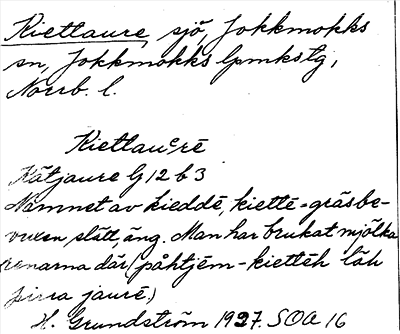 Kietlaure, sjö, Jokkmokks
sn, Jokkmokks lpmkslg,
Norrb. l.
Kietlauᶜrē
Kätjaure G 12 b 3
Namnet av kieddē, kiettē = gräsbe-
vuxen slätt, äng. Man har brukat mjölka
renarna där (påhtjēm-kiettēh läh
pirra jaurē.)
H. Grundström 1937. SOA 16